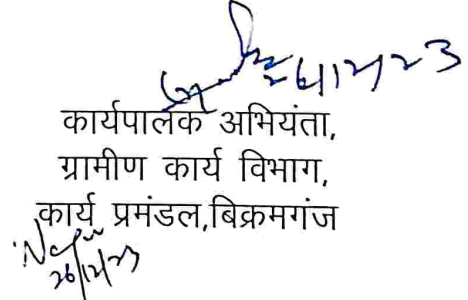 26/12/23
कार्यपालक अभियंता,
ग्रामीण कार्य विभाग,
कार्य प्रमंडल,बिक्रमगंज
26/12/23